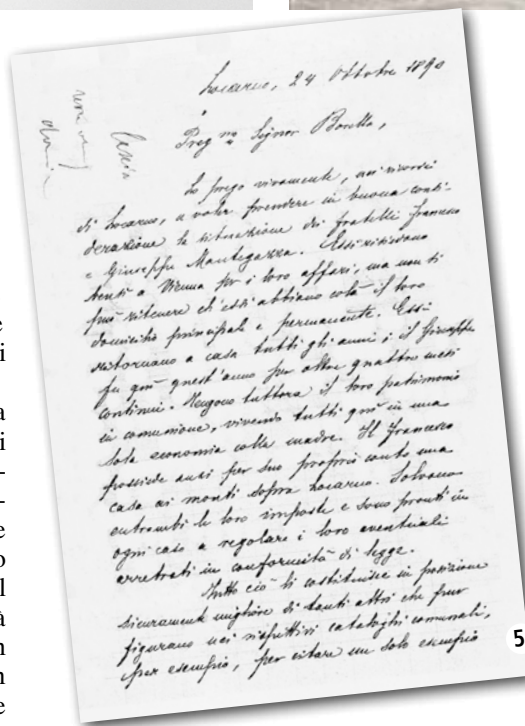 Locarno, 24 Ottobre 1890
Preg.mo Signor Borella,
La prego vivamente, nei ricorsi
di Locarno, a voler prendere in buona consi-
derazione la situazione dei fratelli Francesco
e Giuseppe Mantegazza. Essi risiedono
bensì a Vienna per i loro affari, ma non si
può ritenere ch'essi abbiano colà il loro
domicilio principale e permanente. Essi
ritornano a casa tutti gli anni e il Giuseppe
fu qui quest'anno per oltre quattro mesi
continui. Tengono tuttora il loro patrimonio
in comunione, vivendo tutti qui in una
sola economia colla madre. Il Francesco
possiede anzi per suo proprio conto una
casa ai monti sopra Locarno. Solvono
entrambi le loro imposte e sono pronti in
ogni caso a regolare i loro eventuali
arretrati in conformità di legge.
Tutto ciò li costituisce in posizione
sicuramente migliore di tanti altri che pur
figurano nei rispettivi cataloghi comunali,
per esempio, per citare un solo esempio
e
i
a
i
-
-
e
o
l
à
n
n
e
5